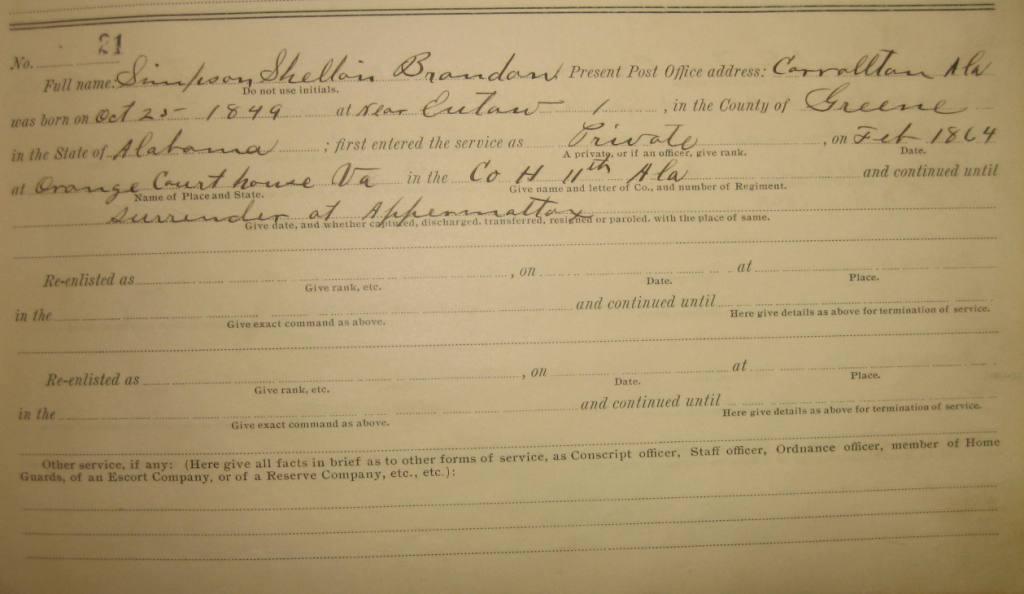 No. 21
Full name: Simpson Shelton Brandon Present Post Office address: Carrollton Ala
Do not use initials.
was born on Oct 25 1849 at Near Eutaw 1, in the County of Greene
in the State of Alabama; first entered the service as Private, on Feb 1864
A private, or if an officer, give rank. Date.
at Orange Court house Va in the Co H 11th Ala and continued until
Name of Place and State. Give name and letter of Co., and number of Regiment.
Surrender at Appermattox
Give date, and whether captured, discharged, transferred, resigned or paroled, with the place of same.
Re-enlisted as , on at
Give rank, etc. Date. Place.
in the and continued until
Give exact command as above. Here give details as above for termination of service.
Re-enlisted as , on at
Give rank, etc. Date. Place.
in the and continued until
Give exact command as above. Here give details as above for termination of service.
Other service, if any: (Here give all facts in brief as to other forms of service, as Conscript officer, Staff officer, Ordnance officer, member of Home
Guards, of an Escort Company, or of a Reserve Company, etc., etc.):